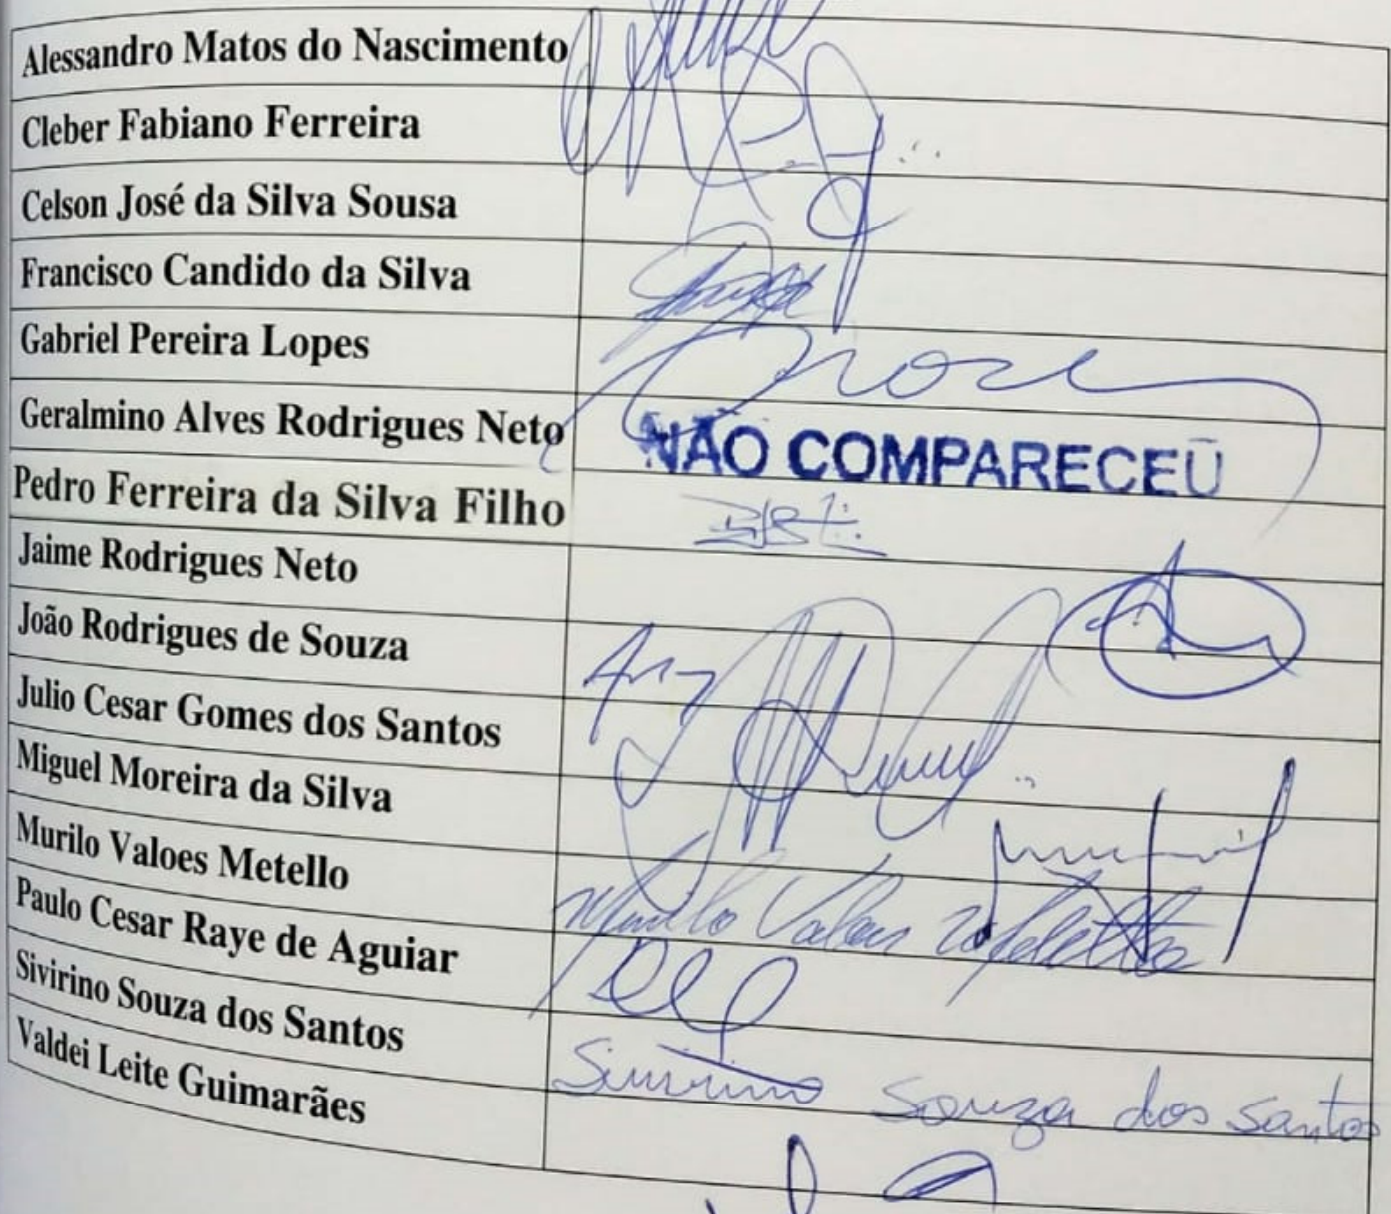 Alessandro Matos do Nascimento
Cleber Fabiano Ferreira
Celson José da Silva Sousa
Francisco Candido da Silva
Gabriel Pereira Lopes
Geralmino Alves Rodrigues Neto NÃO COMPARECEU
Pedro Ferreira da Silva Filho
Jaime Rodrigues Neto
João Rodrigues de Souza
Julio Cesar Gomes dos Santos
Miguel Moreira da Silva
Murilo Valoes Metello Murilo Valoes Metello
Paulo Cesar Raye de Aguiar
Sivirino Souza dos Santos Sivirino Souza dos Santos
Valdei Leite Guimarães